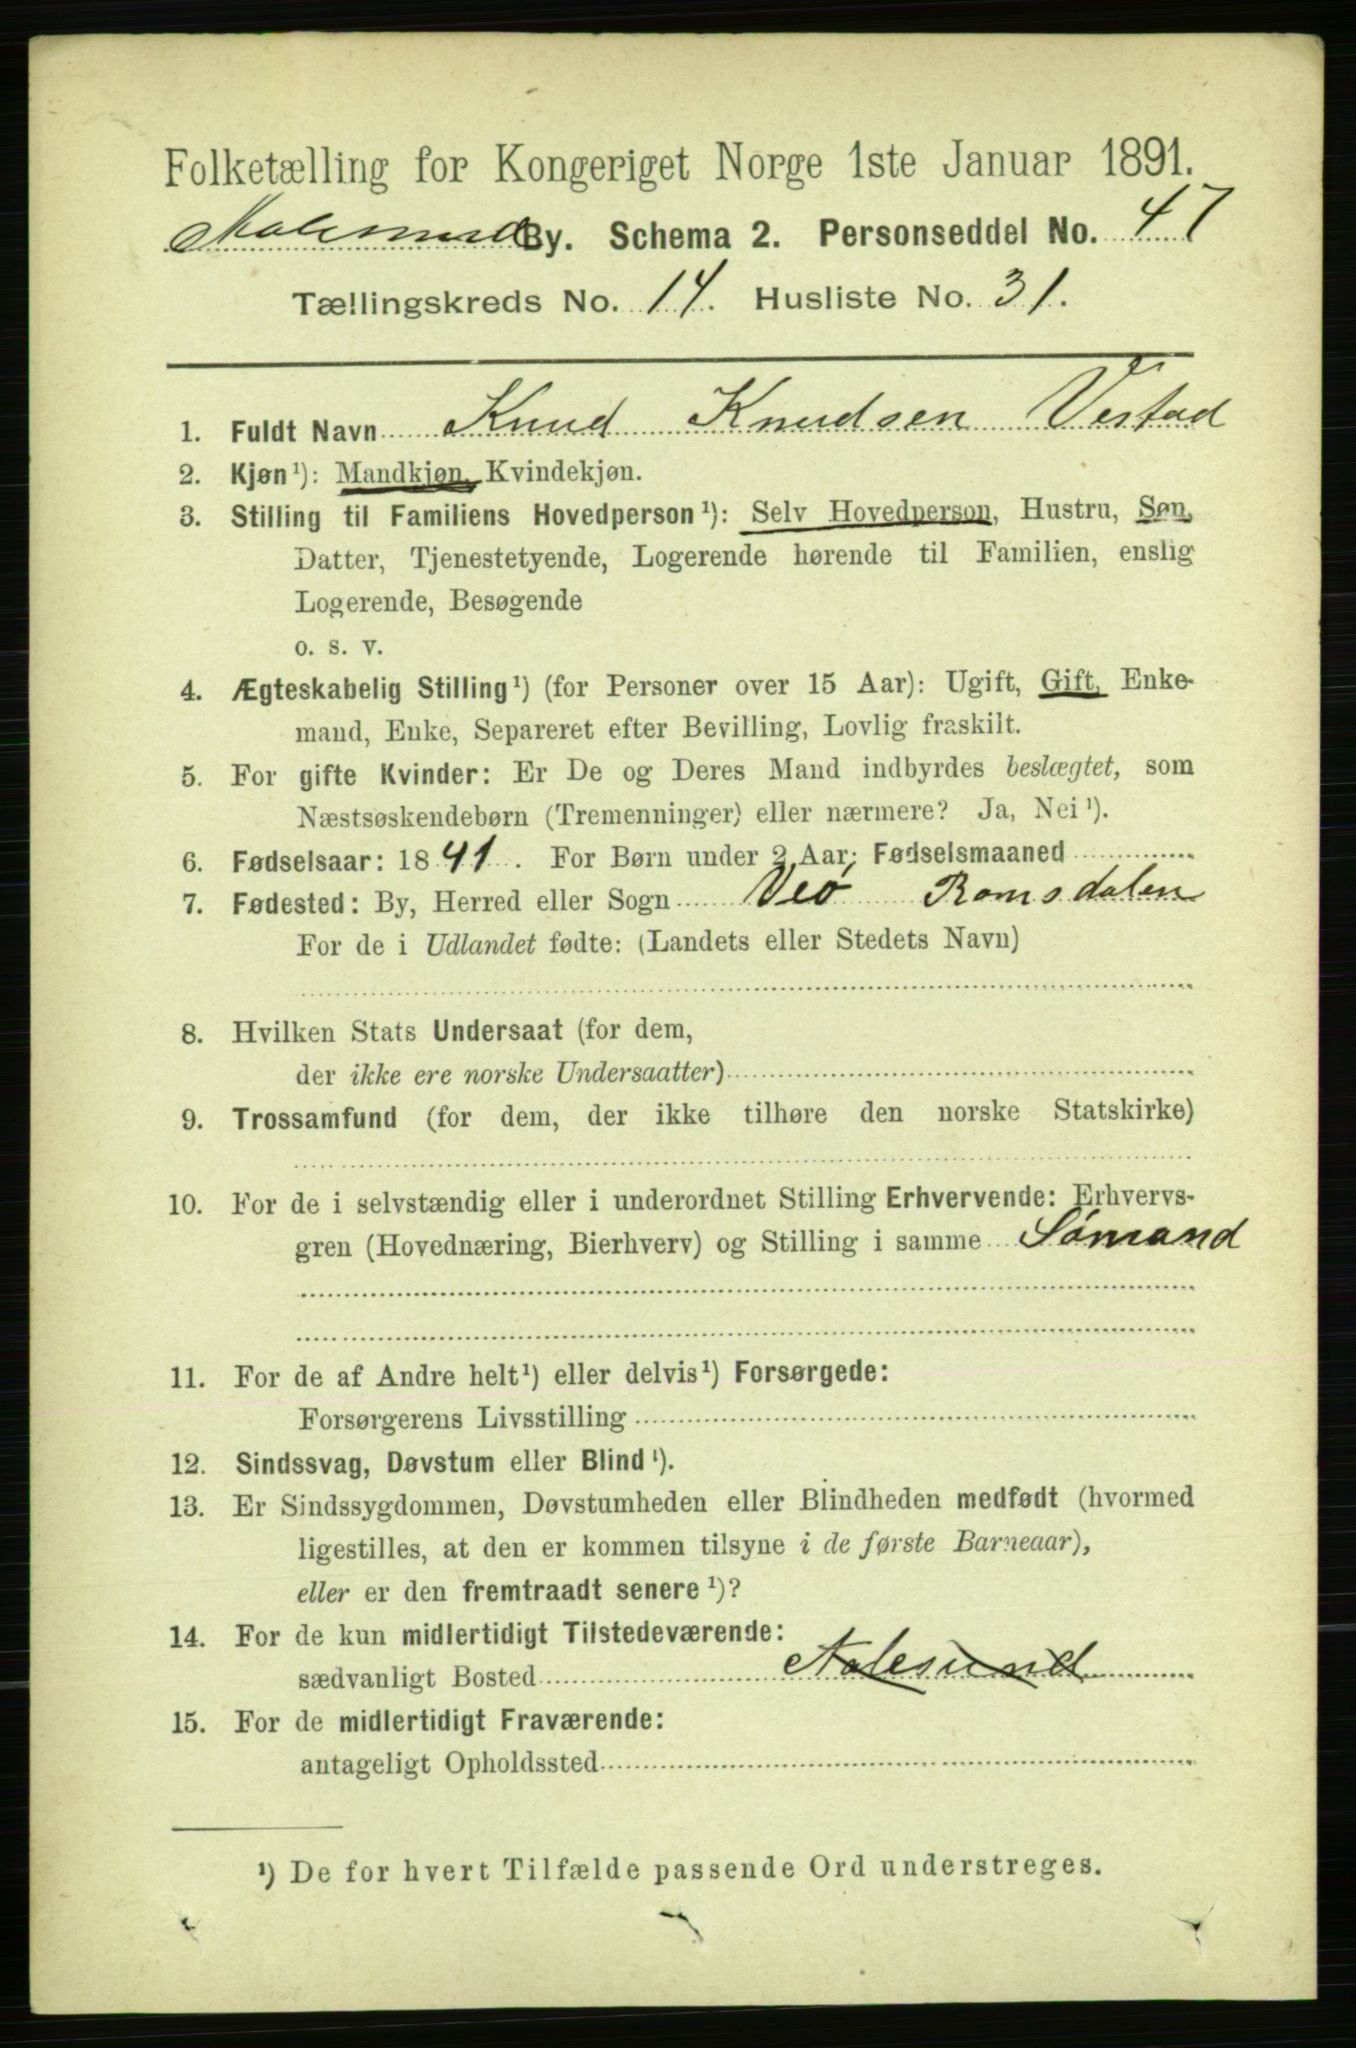 Folketælling for Kongeriget Norge 1ste Januar 1891.
Aalesund By. Schema 2. Personseddel No. 47
Tællingskreds No. 14. Husliste No. 31.
1. Fuldt Navn Knud Knudsen Vestad
2. Kjøn¹): Mandkjøn, Kvindekjøn.
3. Stilling til Familiens Hovedperson¹): Selv Hovedperson, Hustru, Søn,
Datter, Tjenestetyende, Logerende hørende til Familien, enslig
Logerende, Besøgende
o. s. v.
4. Ægteskabelig Stilling¹) (for Personer over 15 Aar): Ugift, Gift, Enke-
mand, Enke, Separeret efter Bevilling, Lovlig fraskilt.
5. For gifte Kvinder: Er De og Deres Mand indbyrdes beslægtet, som
Næstsøskendebørn (Tremenninger) eller nærmere? Ja, Nei¹).
6. Fødselsaar: 1841. For Børn under 2 Aar: Fødselsmaaned
7. Fødested: By, Herred eller Sogn Veø Romsdalen
For de i Udlandet fødte: (Landets eller Stedets Navn)
8. Hvilken Stats Undersaat (for dem,
der ikke ere norske Undersaatter)
9. Trossamfund (for dem, der ikke tilhøre den norske Statskirke)
10. For de i selvstændig eller i underordnet Stilling Erhvervende: Erhvervs-
gren (Hovednæring, Bierhverv) og Stilling i samme Sømand
11. For de af Andre helt¹) eller delvis¹) Forsørgede:
Forsørgerens Livsstilling
12. Sindssvag, Døvstum eller Blind¹).
13. Er Sindssygdommen, Døvstumheden eller Blindheden medfødt (hvormed
ligestilles, at den er kommen tilsyne i de første Barneaar),
eller er den fremtraadt senere¹)?
14. For de kun midlertidigt Tilstedeværende:
sædvanligt Bosted Aalesund
15. For de midlertidigt Fraværende:
antageligt Opholdssted
¹) De for hvert Tilfælde passende Ord understreges.